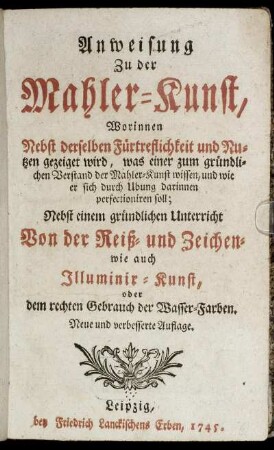 Anweisung
Zu der
Mahler-Kunst,
Worinnen
Nebst derselben Fürtreflichkeit und Nu-
tzen gezeiget wird, was einer zum gründli-
chen Verstand der Mahler-Kunst wissen, und wie
er sich durch Ubung darinnen
perfectioniren soll;
Nebst einem gründlichen Unterricht
Von der Reiß- und Zeichen-
wie auch
Illuminir-Kunst,
oder
dem rechten Gebrauch der Wasser-Farben.
Neue und verbesserte Auflage.
Leipzig,
bey Friedrich Lanckischens Erben, 1745.